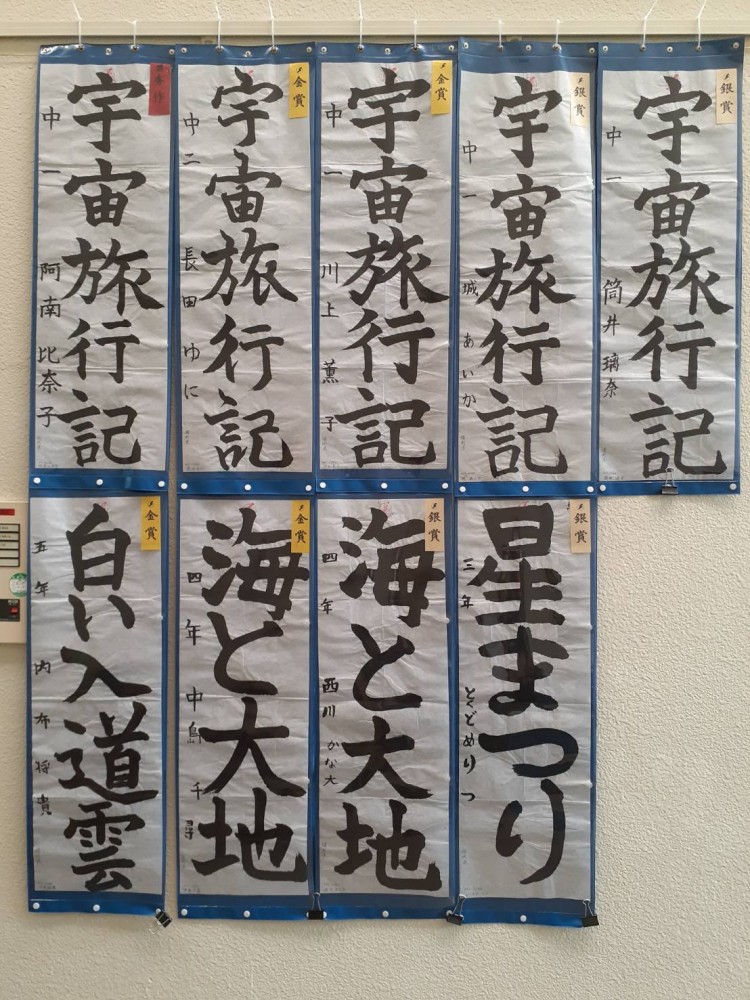 宇宙旅行記
中一 阿南比奈子
金賞
宇宙旅行記
中二 長田ゆに
金賞
宇宙旅行記
中一 川上薫子
銀賞
宇宙旅行記
中一 城あいか
銀賞
宇宙旅行記
中一 筒井璃奈
金賞
白い入道雲
五年 内布将貴
金賞
海と大地
四年 中島千尋
銀賞
海と大地
四年 西川かな大
銀賞
星まつり
三年 とくどめりつ